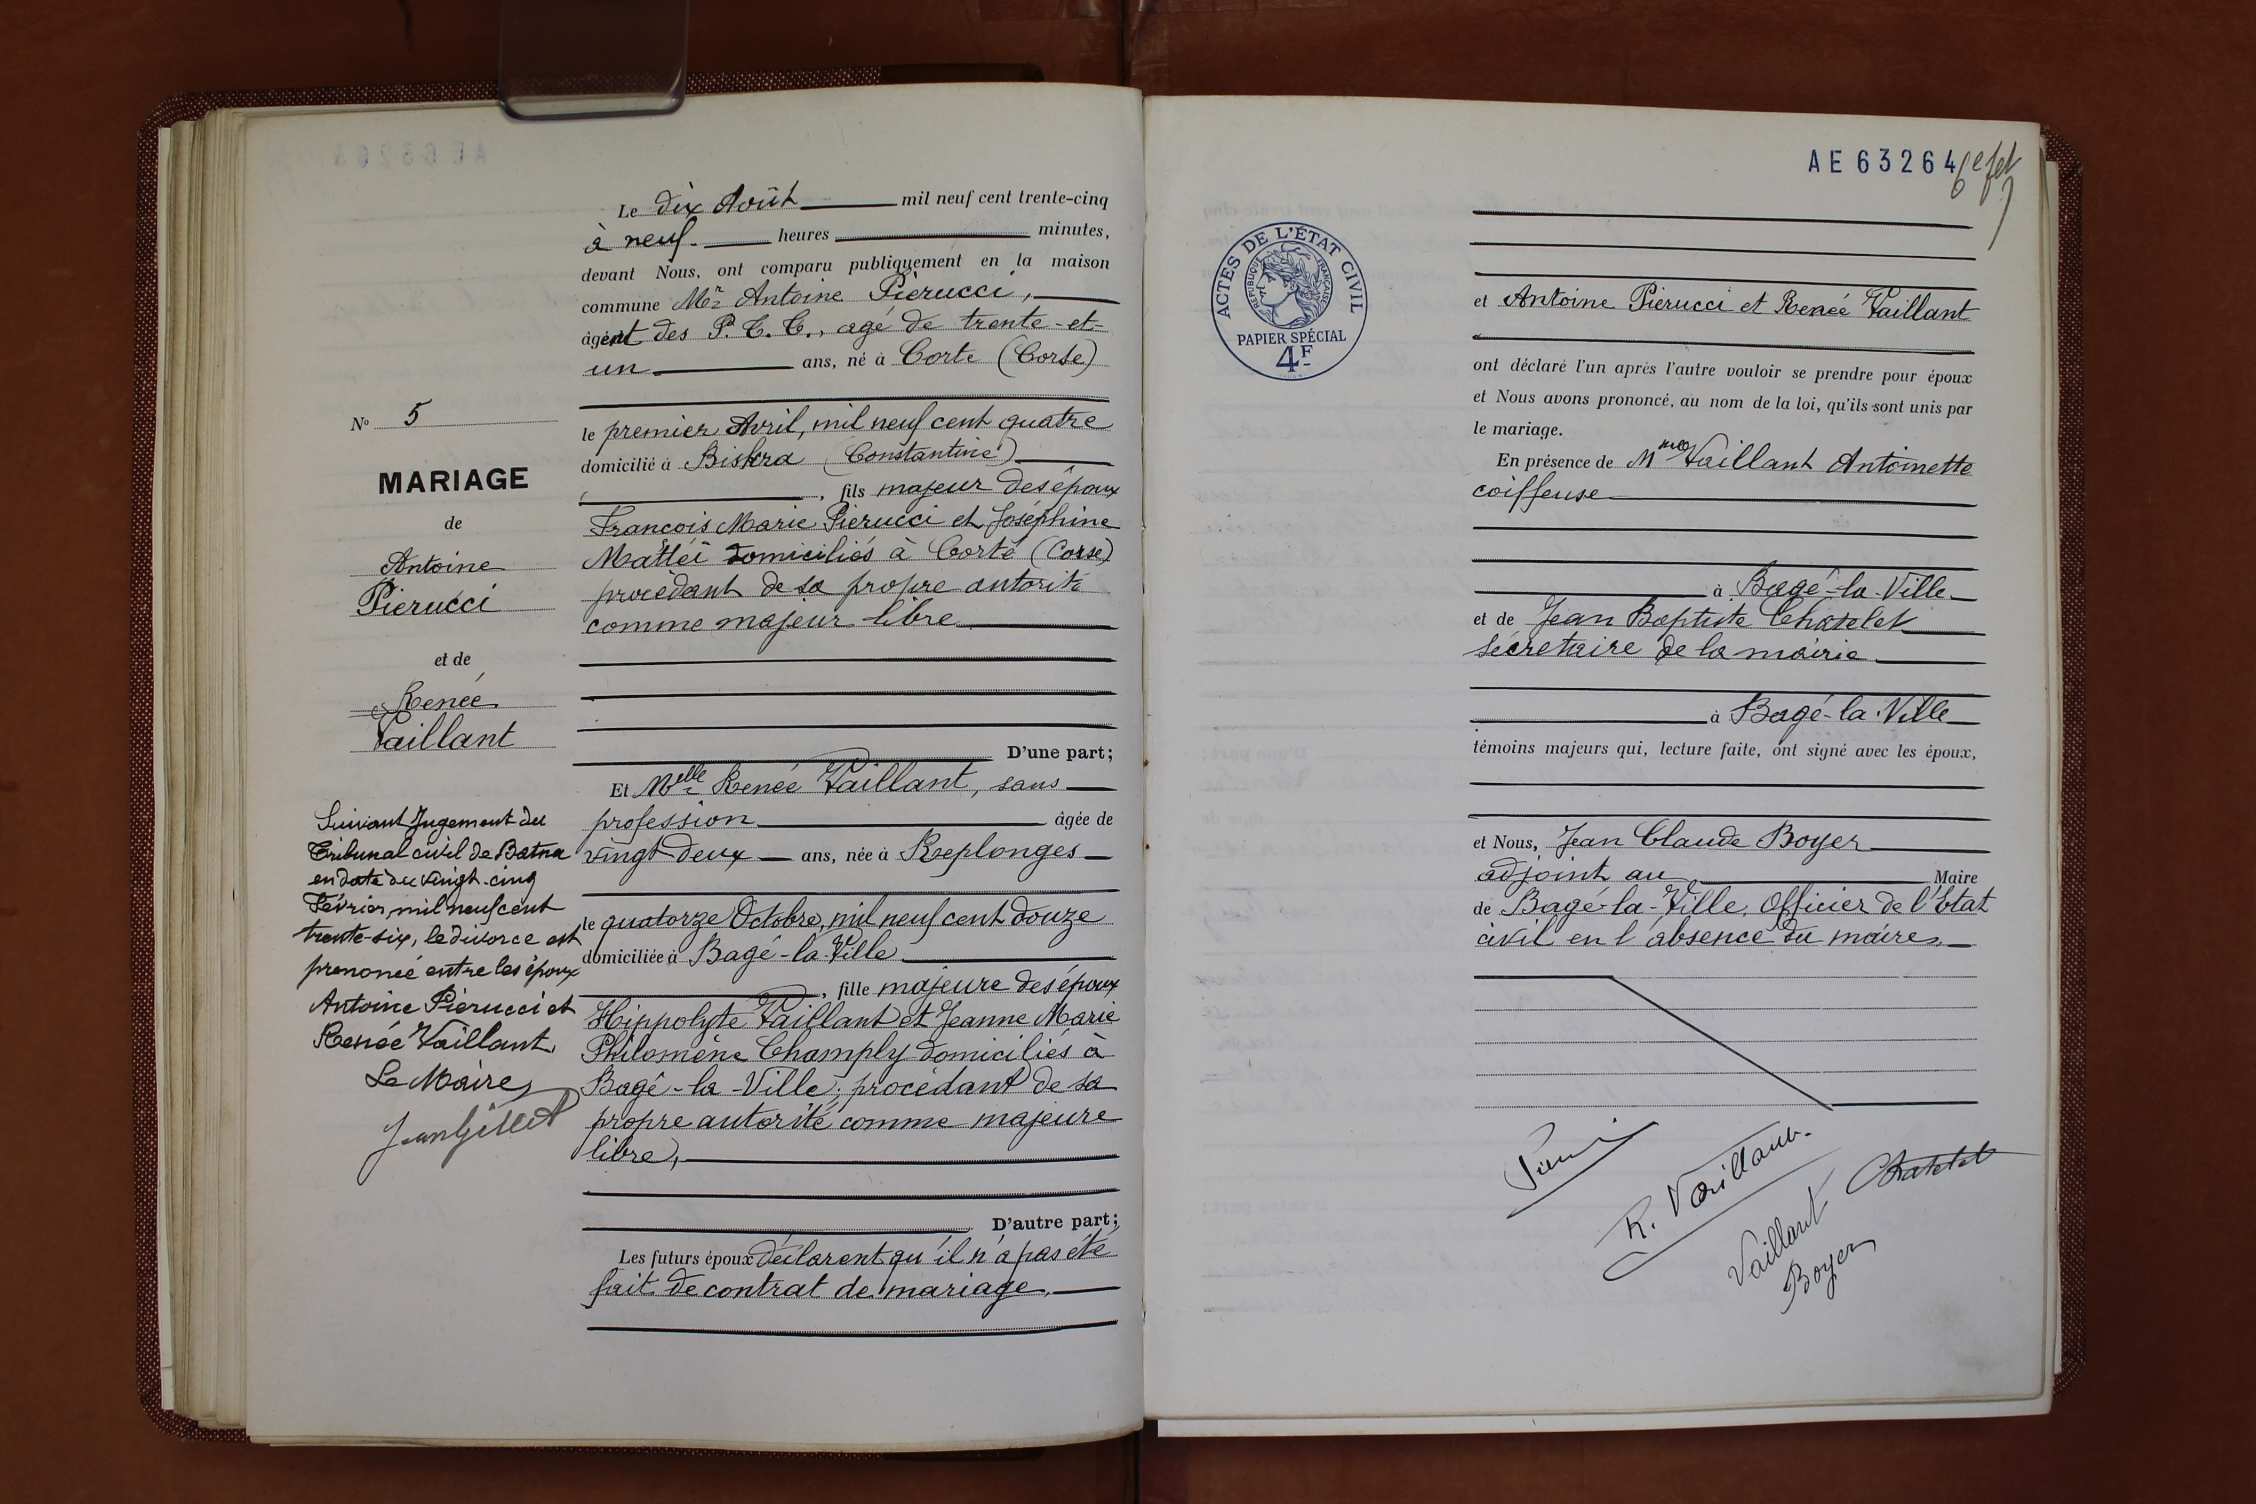 Le dix Août mil neuf cent trente-cinq
à neuf. heures minutes,
devant Nous, ont comparu publiquement en la maison
commune Mr Antoine Piérucci,
âgent des P. T. T., agé de trente-et-
un ans, né à Corte (Corse)
le premier Avril, mil neuf cent quatre
domicilié à Biskra (Constantine)
, fils majeur des époux
Francois Marie Piérucci et Joséphine
Mattéi domiciliés à Corté (Corse)
procédant de sa propre autorité
comme majeur libre
D'une part;
Et Melle Renée Vaillant, sans
profession âgée de
vingt deux ans, née à Replonges
le quatorze Octobre, mil neuf cent douze
domiciliée à Bagé-la-Ville
, fille majeure des époux
Hippolyte Vaillant et Jeanne Marie
Philomène Champly domiciliés à
Bagé-la-Ville, procédant de sa
propre autorité comme majeure
libre,
D'autre part;
Les futurs époux déclarent qu'il n'a pas été
fait de contrat de mariage.
No 5
MARIAGE
de
Antoine
Piérucci
et de
Renée
Vaillant
Suivant Jugement du
Tribunal civil de Batna
en date du vingt-cinq
Février, mil neuf cent
trente-six, le divorce est
prononcé entre les époux
Antoine Piérucci et
Renée Vaillant.
Le Maire,
AE 63264
6e fet
ACTES DE L'ÉTAT CIVIL
RÉPUBLIQUE FRANÇAISE
PAPIER SPÉCIAL
4F
et Antoine Piérucci et Renée Vaillant
ont déclaré l'un après l'autre vouloir se prendre pour époux
et Nous avons prononcé, au nom de la loi, qu'ils sont unis par
le mariage.
En présence de Mme Vaillant Antoinette
coiffeuse
à Bagé-la-Ville
et de Jean Baptiste Chatelet
sécretaire de la mairie
à Bagé-la-Ville
témoins majeurs qui, lecture faite, ont signé avec les époux,
et Nous, Jean Claude Boyer
adjoint au Maire
de Bagé-la-Ville. Officier de l'Etat
civil en l'absence du maire.
R. Vaillant.
Chatelet
Vaillant
Boyer